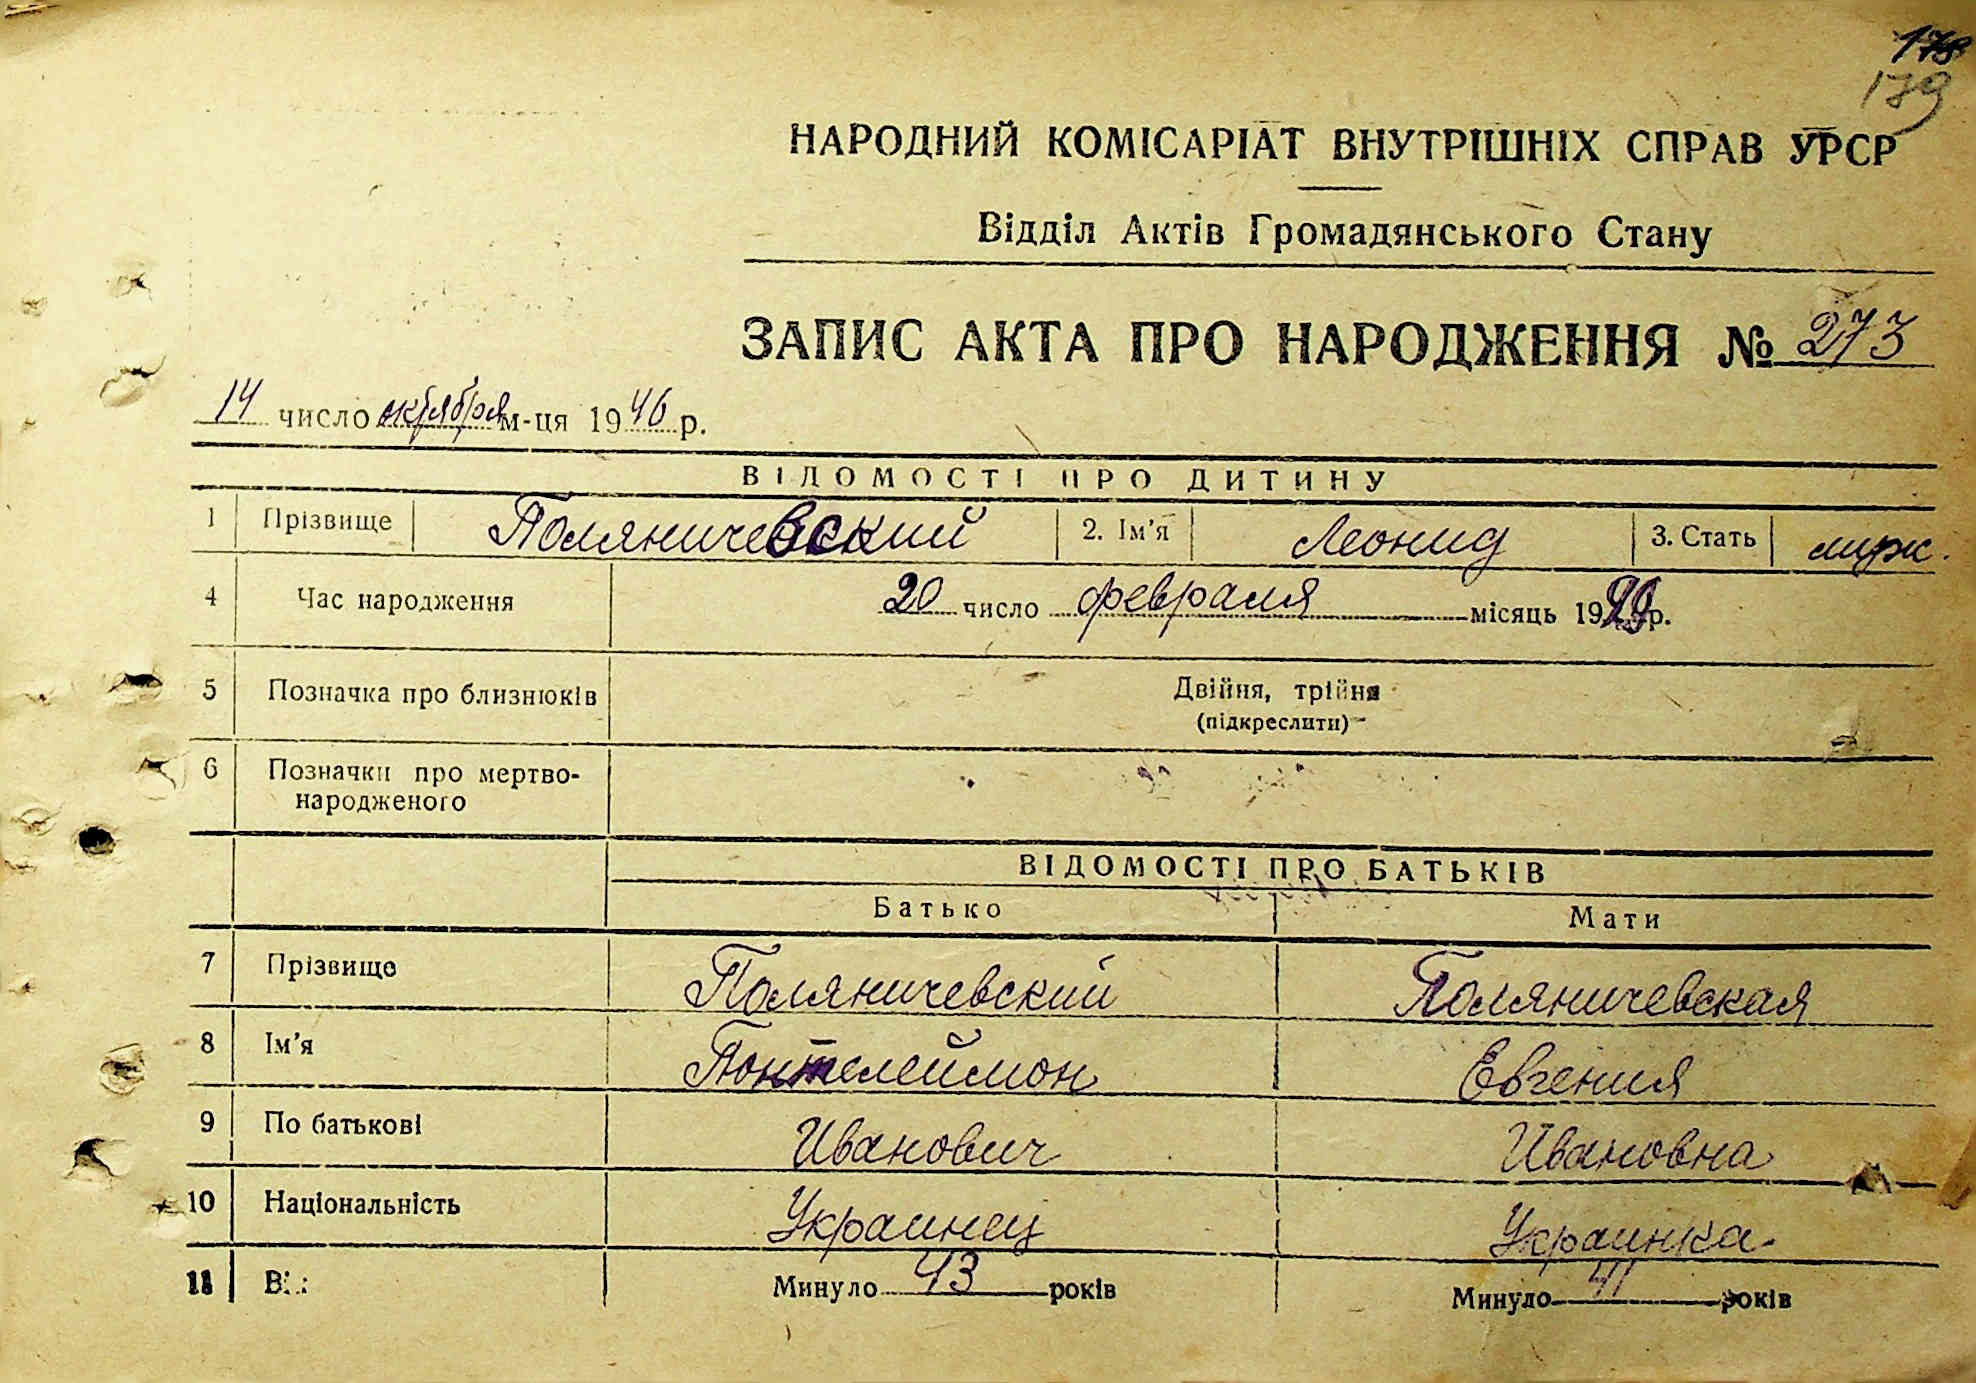 178
179
НАРОДНИЙ КОМІСАРІАТ ВНУТРІШНІХ СПРАВ УРСР
Відділ Актів Громадянського Стану
ЗАПИС АКТА ПРО НАРОДЖЕННЯ № 273
14 число октября м-ця 1946 р.
ВІДОМОСТІ ПРО ДИТИНУ
1 Прізвище Поляничевский 2. Ім'я Леонид 3. Стать муж.
4 Час народження 20 число февраля місяць 1929 р.
5 Позначка про близнюків Двійня, трійня
(підкреслити)
6 Позначки про мертво-
народженого
ВІДОМОСТІ ПРО БАТЬКІВ
Батько Мати
7 Прізвище Поляничевский Поляничевская
8 Ім'я Понтелеймон Евгения
9 По батькові Иванович Ивановна
10 Національність Украинец Украинка
11 Минуло 43 років Минуло 41 років